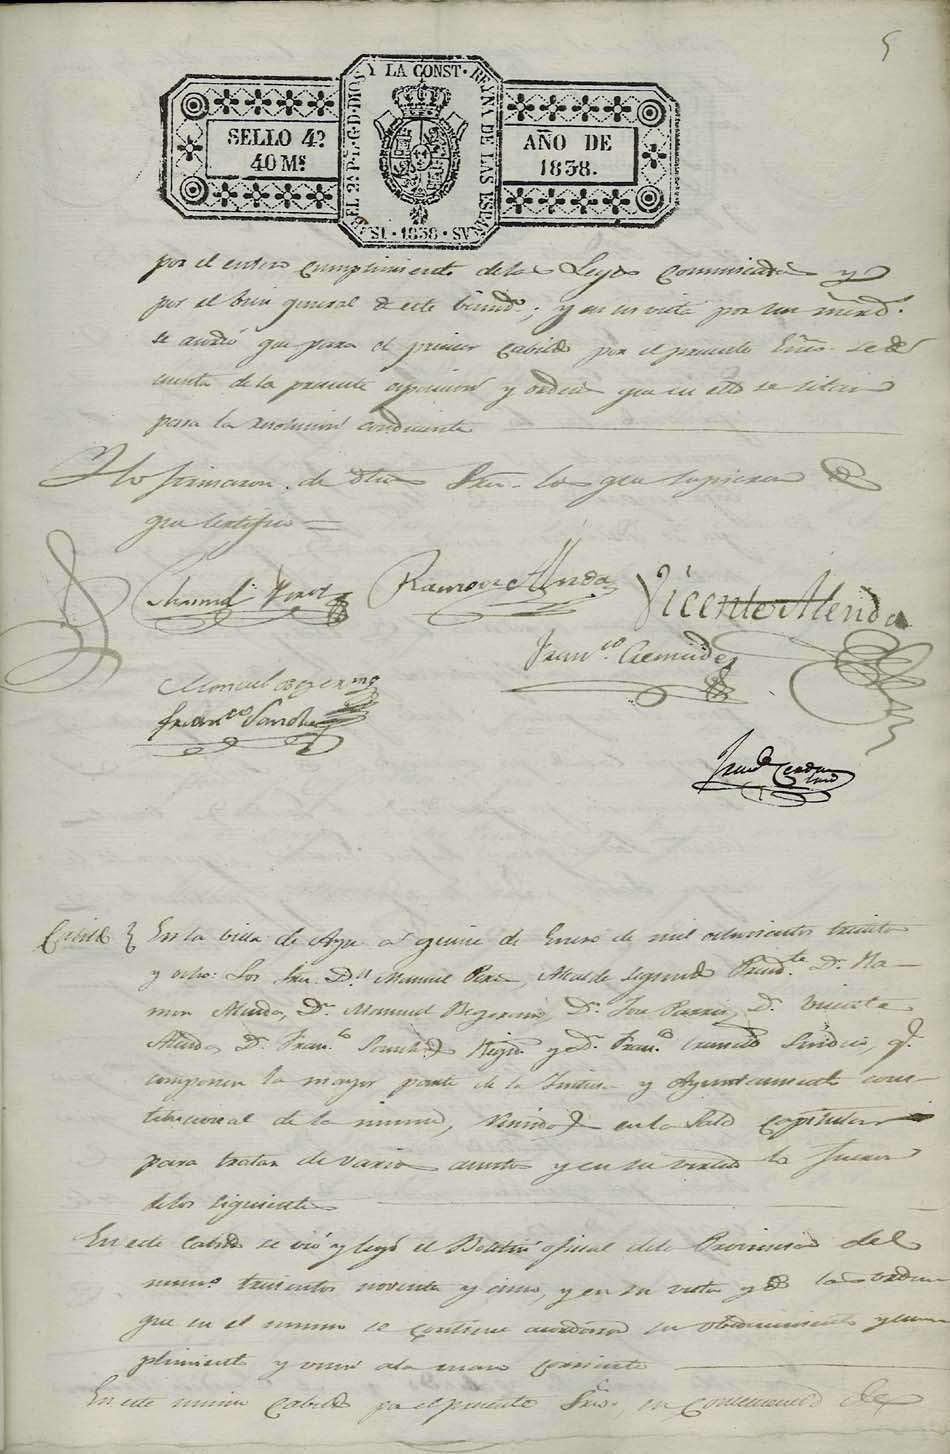 5
SELLO 4º
40 Ms.
YSABEL 2ª P. L. G. D. DIOS Y LA CONST. REYNA DE LAS ESPAÑAS · 1838 ·
AÑO DE
1838.
por el entero cumplimiento de las Leyes comunicadas y
por el bien general de este ; y en su vista por un
se acordó que para el primer Cabildo por el presente se dé
cuenta de la presente y orden que en ella se
para la resolución conducente
Y lo firmaron de dhos Sres. los que supieron de
que certifico =
Manuel Perez
Ramon Merida
Vicente Merida
Franco.
Manuel Bezerra
Franco Sanchez
Cabildo
En la villa de a quince de Enero de mil ochocientos treinta
y ocho: Los Sres. Dn Manuel Perez Alcalde segundo Presidte. Dn. Ra-
mon Merida, Dn. Manuel Bezerra, Dn. Jose Dn. Vicente
Merida, Dn. Franco. Sanchez Regs. y Dn. Franco. Sindico, q.
componen la mayor parte de la Justicia y Ayuntamiento cons-
titucional de la misma, reunidos en la Sala Capitular
para tratar de varios asuntos y en su virtud lo fueron
de los siguientes
En este Cabildo se vió y leyó el Boletin oficial de la Provincia del
numo. trescientos noventa y cinco, y en su vista y de las orden
que en el mismo se contiene acordaron su obedecimiento y cum
plimiento y unir a la mano corriente
En este mismo Cabildo por el presente Srio., en consecuencia de